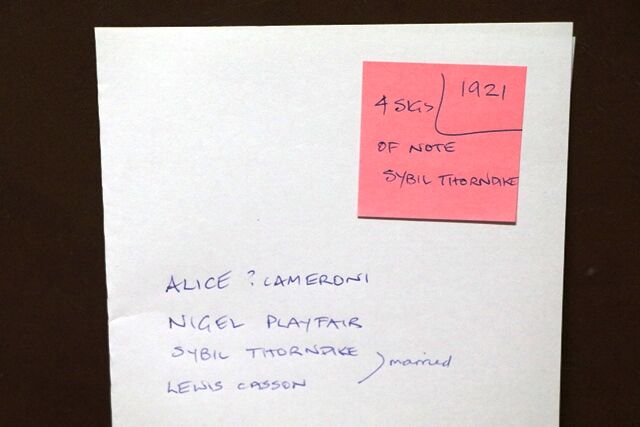 1921
4 SIGS
OF NOTE
SYBIL THORNDIKE
ALICE ? CAMERONI
NIGEL PLAYFAIR
SYBIL THORNDIKE
married
LEWIS CASSON